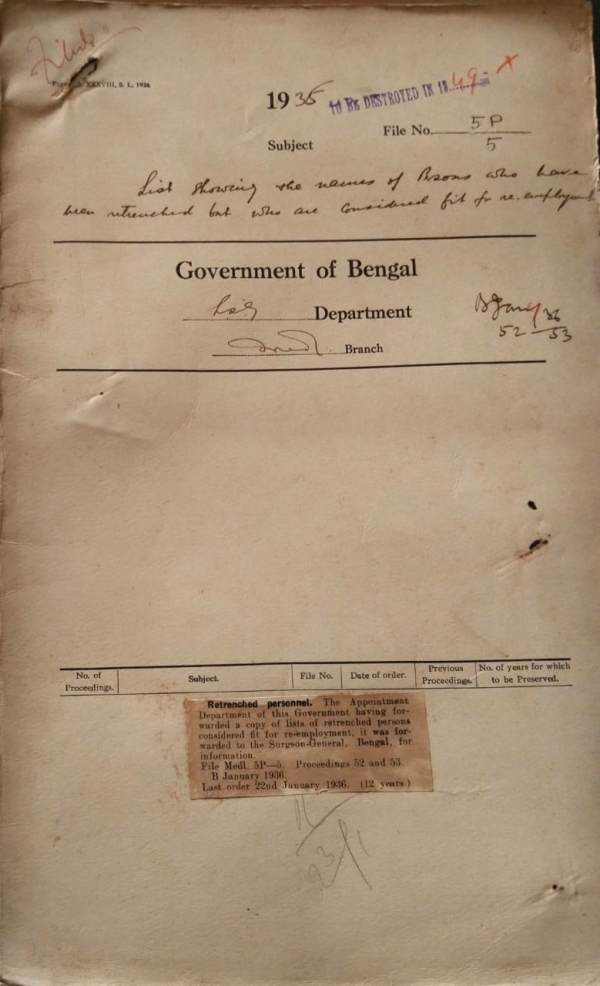 Filed
XXXVIII, B. I., 1936
1935 TO BE DESTROYED IN 1949 x
File No. 5P
5
Subject
List showing the names of Persons who have
been retrenched but who are considered fit for re-employment
Government of Bengal
Department
Branch
B Jany 36
52-53
No. of Proceedings.
Subject.
File No.
Date of order.
Previous Proceedings.
No. of years for which to be Preserved.
Retrenched personnel. The Appointment
Department of this Government having for-
warded a copy of lists of retrenched persons
considered fit for re-employment, it was for-
warded to the Surgeon-General, Bengal, for
information.
File Medl. 5P—5. Proceedings 52 and 53.
B January 1936.
Last order 22nd January 1936. (12 years.)
23/1